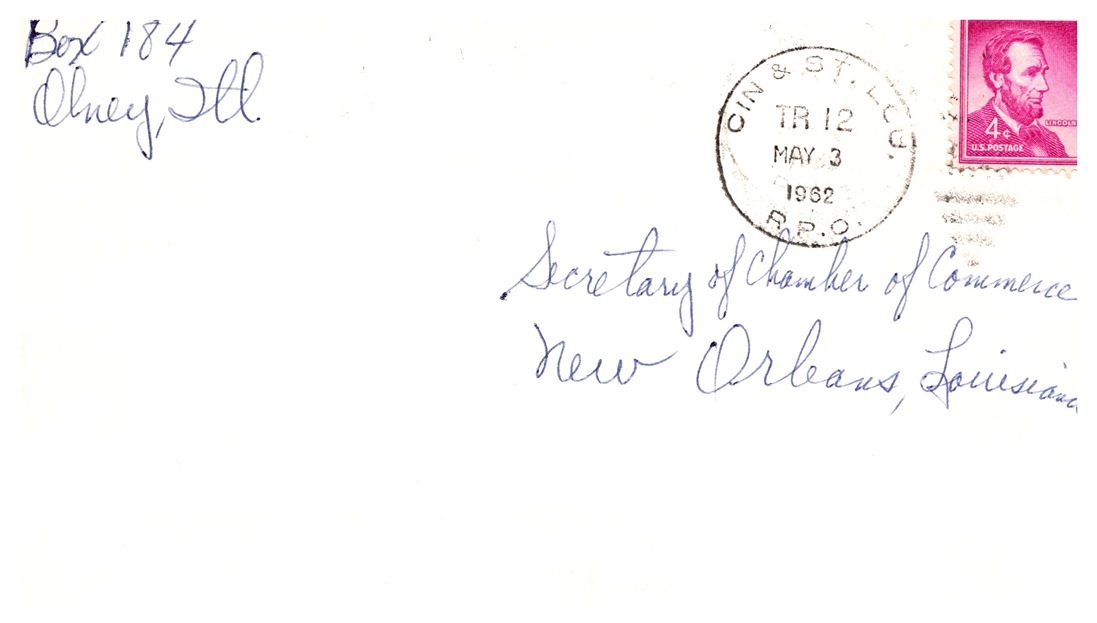 Box 184
Olney, Ill.
CIN & ST. LOU.
TR 12
MAY 3
1962
R.P.O.
LINCOLN
4¢
U.S. POSTAGE
Secretary of Chamber of Commerce
New Orleans, Louisiana